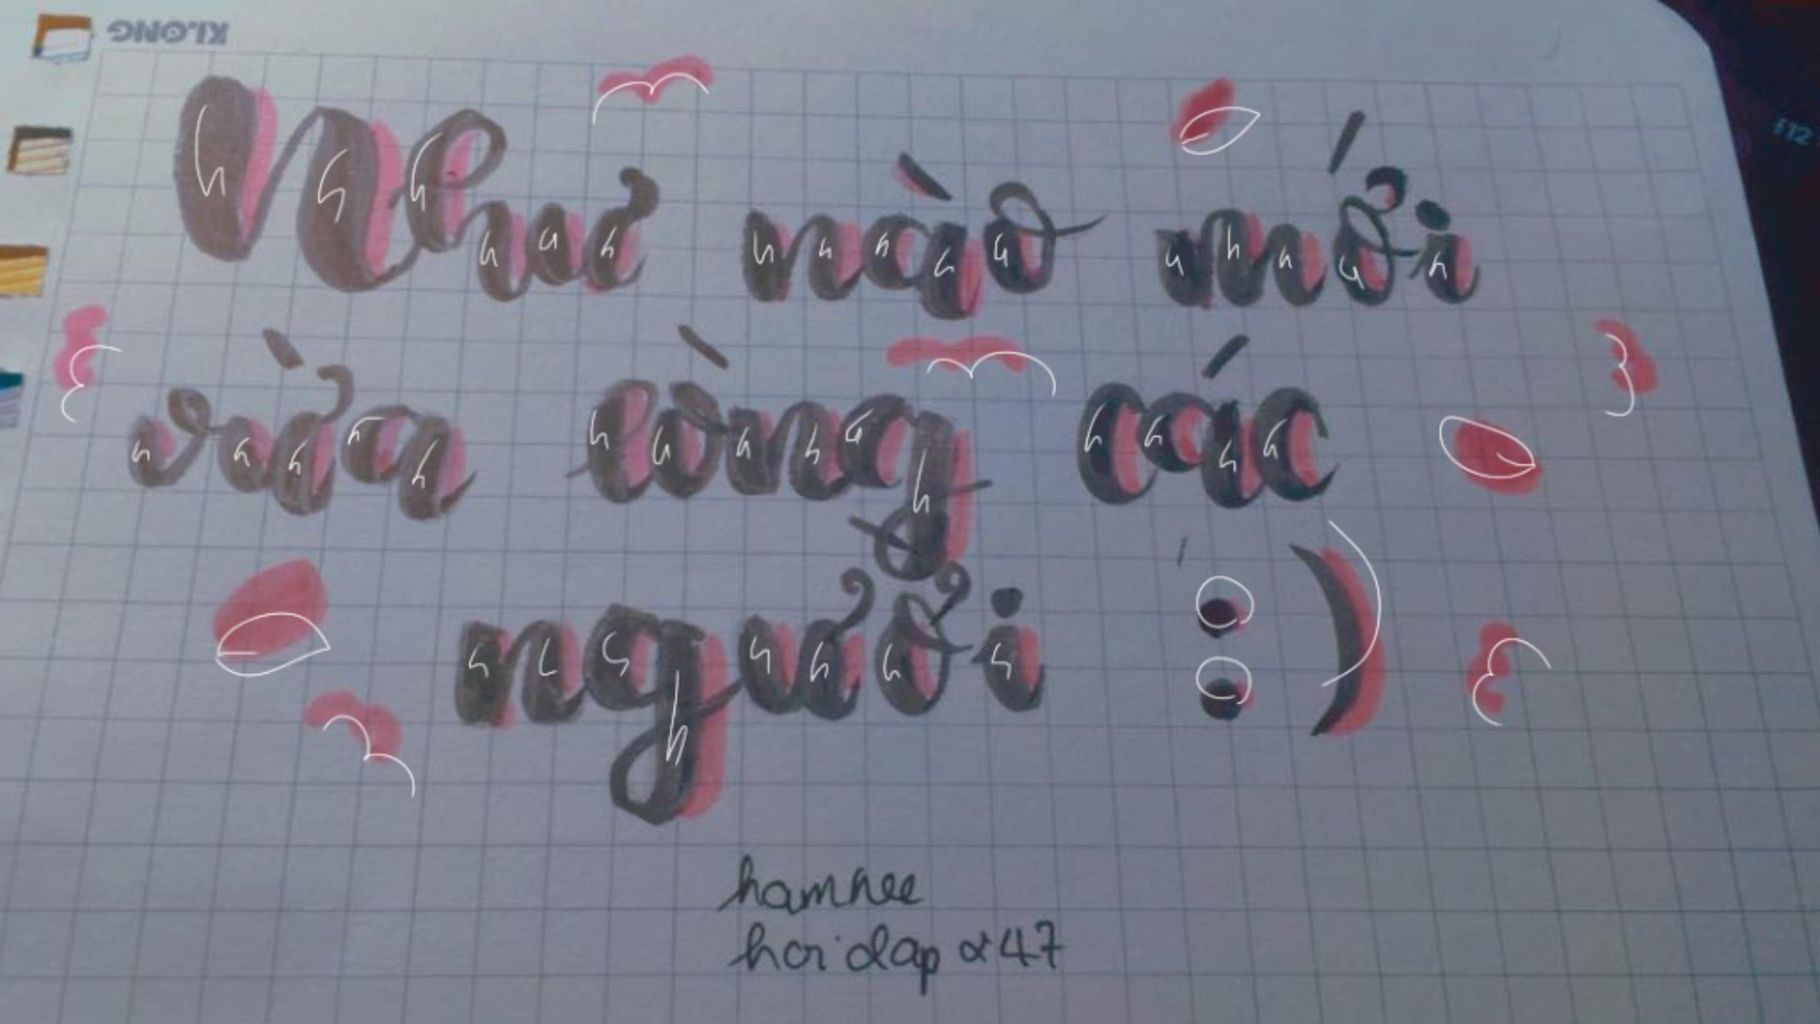 KLONG
Như nào mới
vừa lòng các
người :)
hamnee
hoidap 247
f12